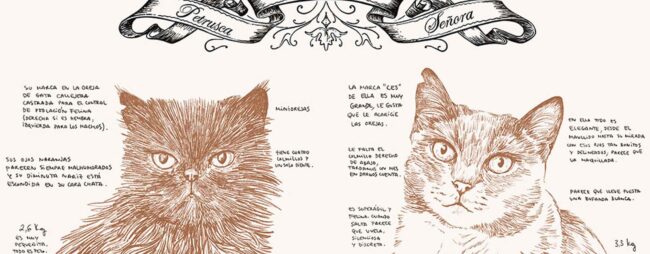 Petrusca
Señora
SU MARCA EN LA OREJA
DE GATA CALLEJERA
CASTRADA PARA EL CONTROL
DE POBLACIÓN FELINA
(DERECHA SI ES HEMBRA,
IZQUIERDA PARA LOS MACHOS).
MINIOREJAS
SUS OJOS NARANJAS
PARECEN SIEMPRE MALHUMORADOS
Y SU DIMINUTA NARIZ ESTÁ
ESCONDIDA EN SU CARA CHATA.
TIENE CUATRO
COLMILLOS Y
UN SOLO DIENTE.
2,6 kg
ES MUY
PEQUEÑITA,
TODO ES PELO.
LA MARCA "CES"
DE ELLA ES MUY
GRANDE, LE GUSTA
QUE LE ACARICIE
LAS OREJAS.
LE FALTA EL
COLMILLO DERECHO
DE ABAJO,
TARDAMOS UN MES
EN DARNOS CUENTA.
ES SUPERÁGIL Y
FELINA. CUANDO
SALTA PARECE
QUE VUELA,
SILENCIOSA
Y DISCRETA.
EN ELLA TODO ES
ELEGANTE, DESDE EL
MAULLIDO HASTA SU MIRADA
CON ESOS OJOS TAN BONITOS
Y DELINEADOS, PARECE QUE
VA MAQUILLADA.
PARECE QUE LLEVE PUESTA
UNA BUFANDA BLANCA.
3,5 kg